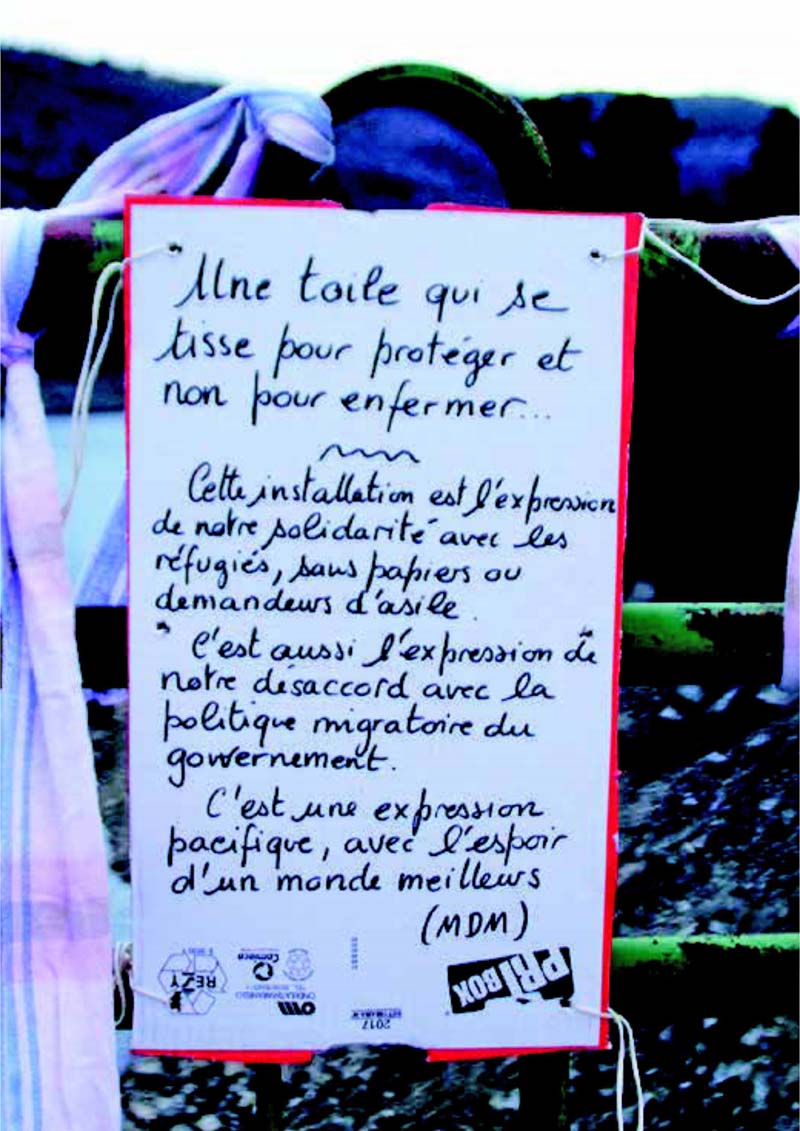 Une toile qui se
tisse pour protéger et
non pour enfermer...
Cette installation est l'éxpression
de notre solidarité avec les
réfugiés, sans papiers ou
demandeurs d'asile.
C'est aussi l'expression de
notre désaccord avec la
politique migratoire du
gouvernement.
C'est une expression
pacifique, avec l'espoir
d'un monde meilleurs
(MDM)
PRI BOX
2017
Comieco
REZY